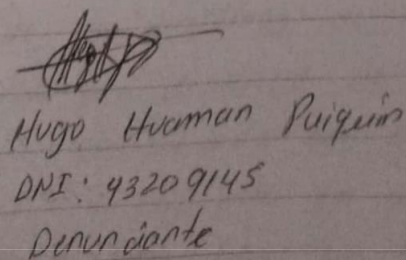 Hugo Huaman Puiquin
DNI: 43209145
Denunciante